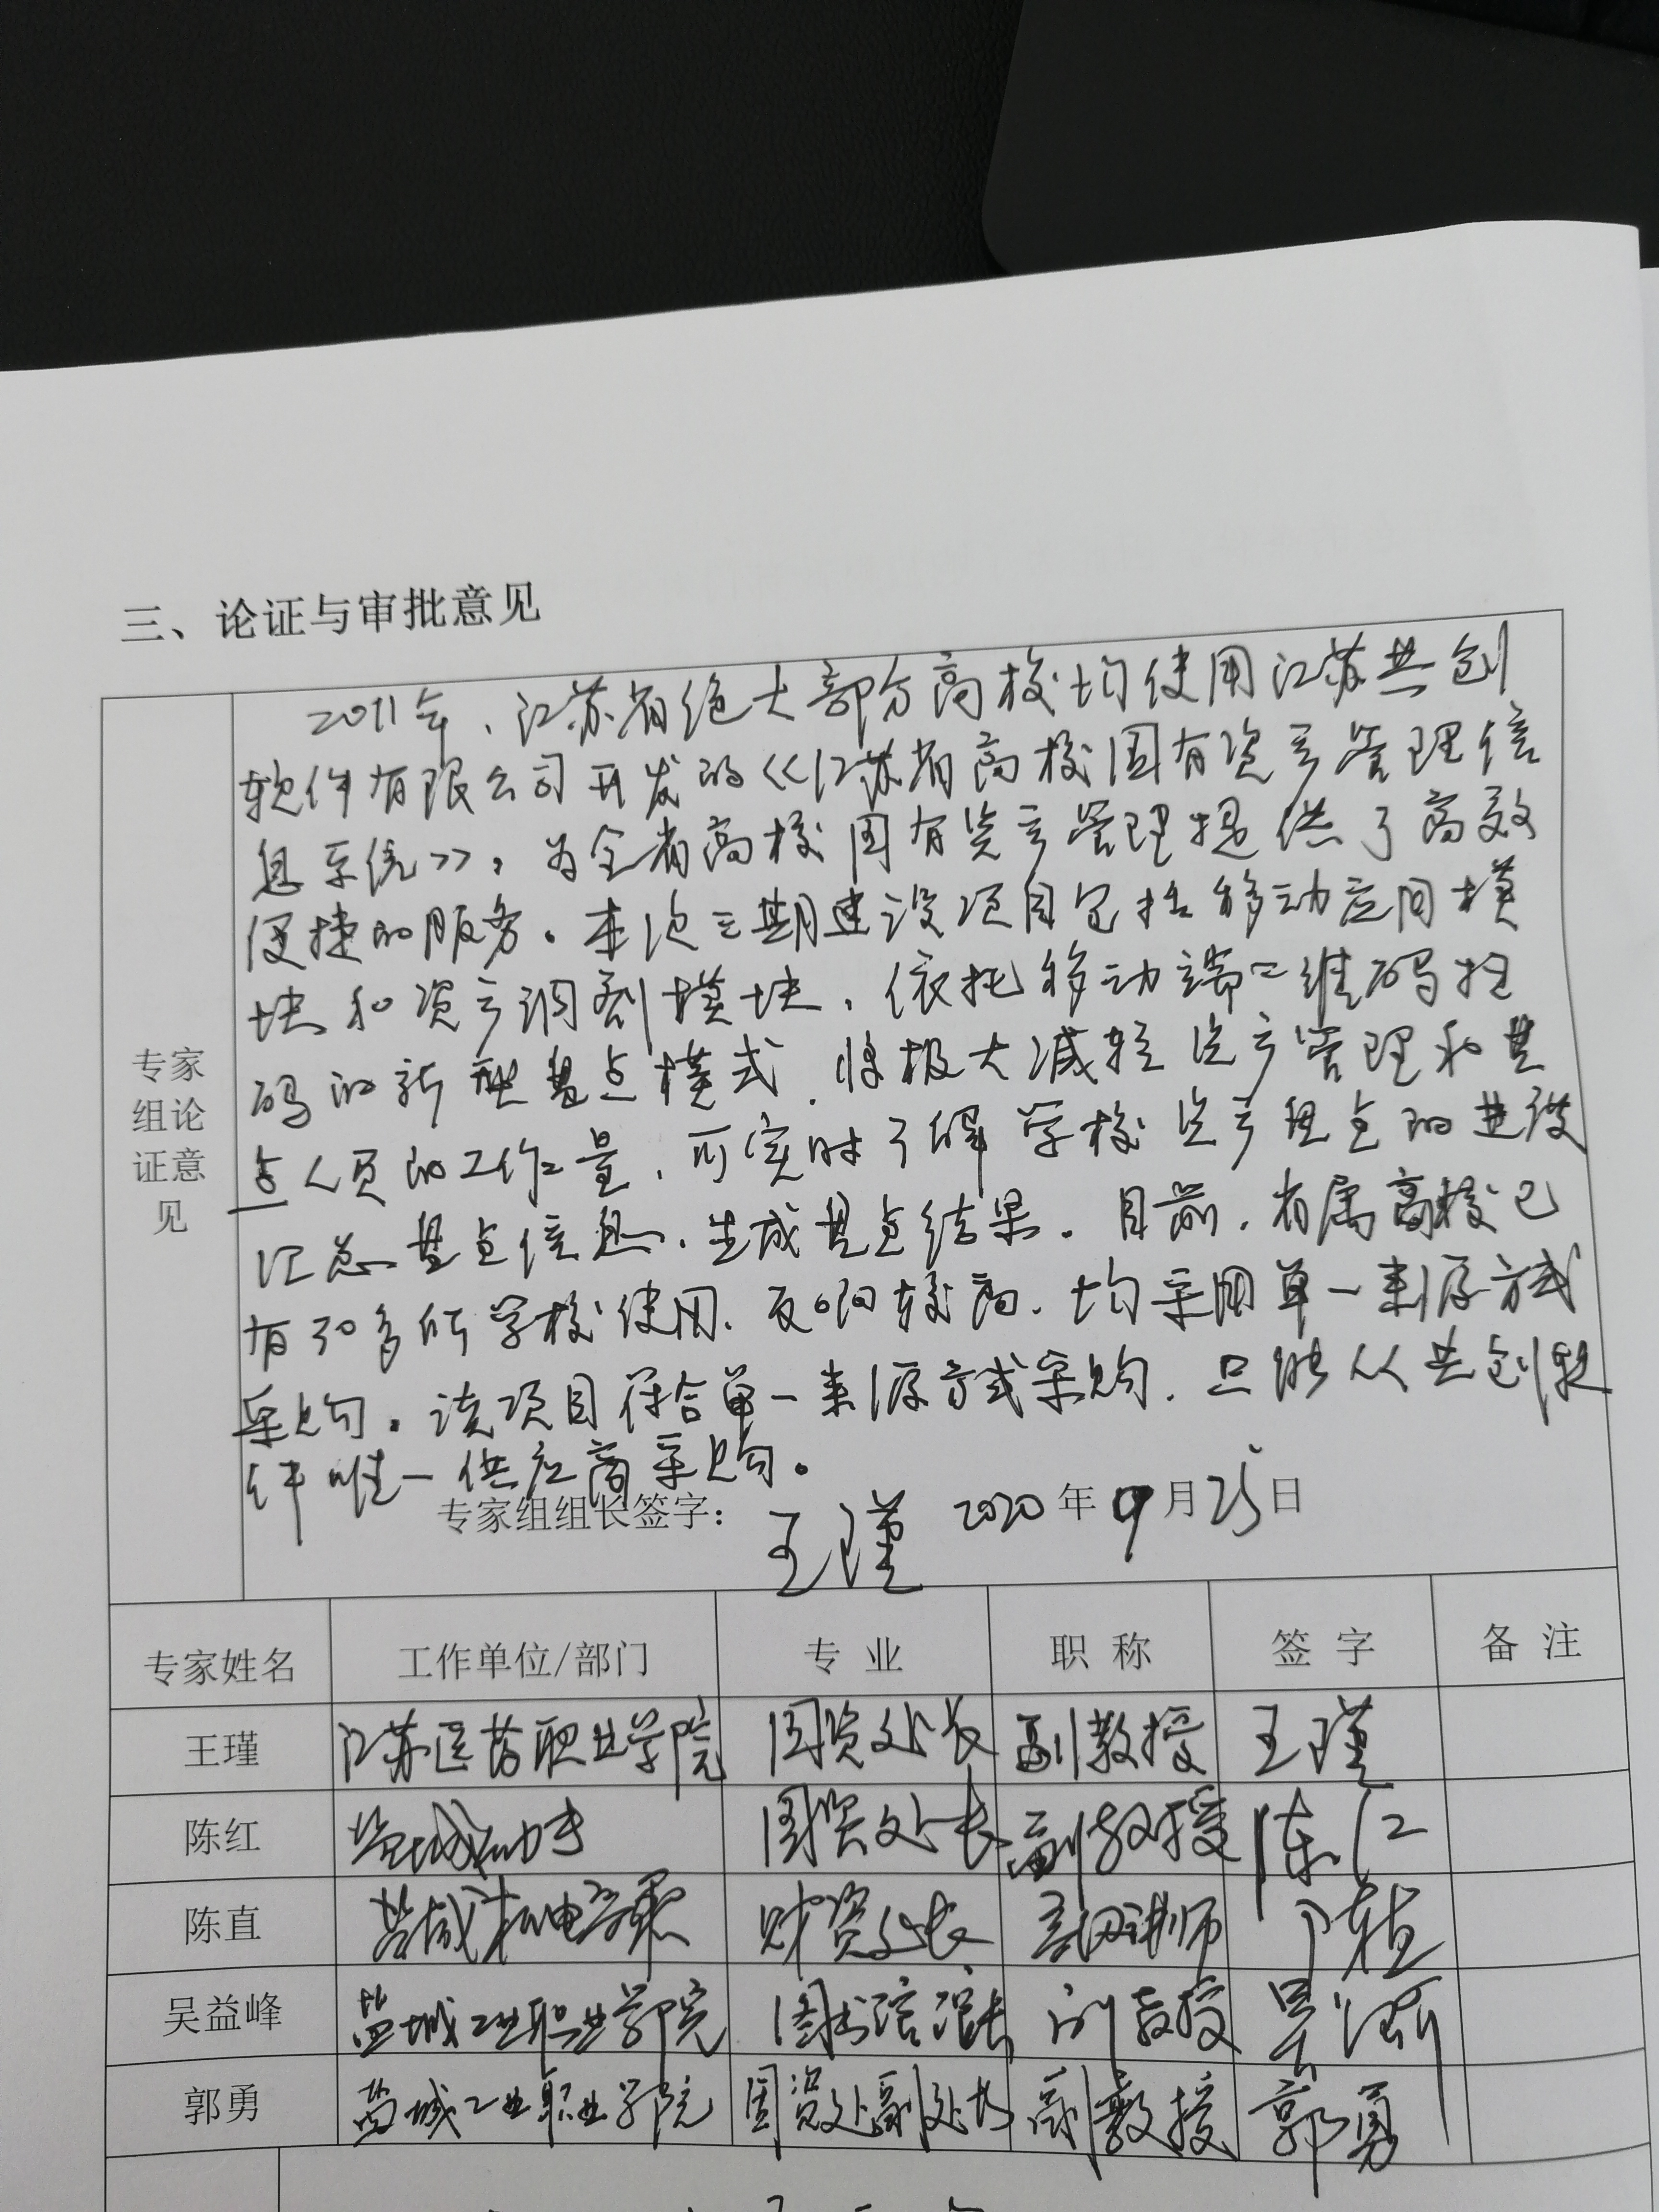 三、论证与审批意见
2011年、江苏省绝大部分高校均使用江苏共创
软件有限公司开发的《江苏省高校国有资产管理信
息系统》，为全省高校国有资产管理提供了高效
便捷的服务。本次三期建设项目包括移动应用模
块和资产调剂模块，依托移动端二维码扫
码的新型盘点模式，将极大减轻资产管理和盘
点人员的工作量，可实时了解学校资产盘点的进度
汇总盘点信息，生成盘点结果。目前，省属高校已
有30多所学校使用、反响较高、均采用单一来源方式
采购。该项目符合单一来源方式采购，只能从共创软
件唯一供应商采购。
专家组论证意见
专家组组长签字： 王瑾 2020年9月25日
专家姓名 工作单位/部门 专 业 职 称 签 字 备 注
王瑾 江苏医药职业学院 国资处长 副教授 王瑾
陈红 盐城幼专 国资处长 副教授 陈红
陈直 盐城机电高职 财资处长 高级讲师 陈直
吴益峰 盐城工业职业学院 图书馆馆长 副教授 吴益峰
郭勇 盐城工业职业学院 国资处副处长 副教授 郭勇